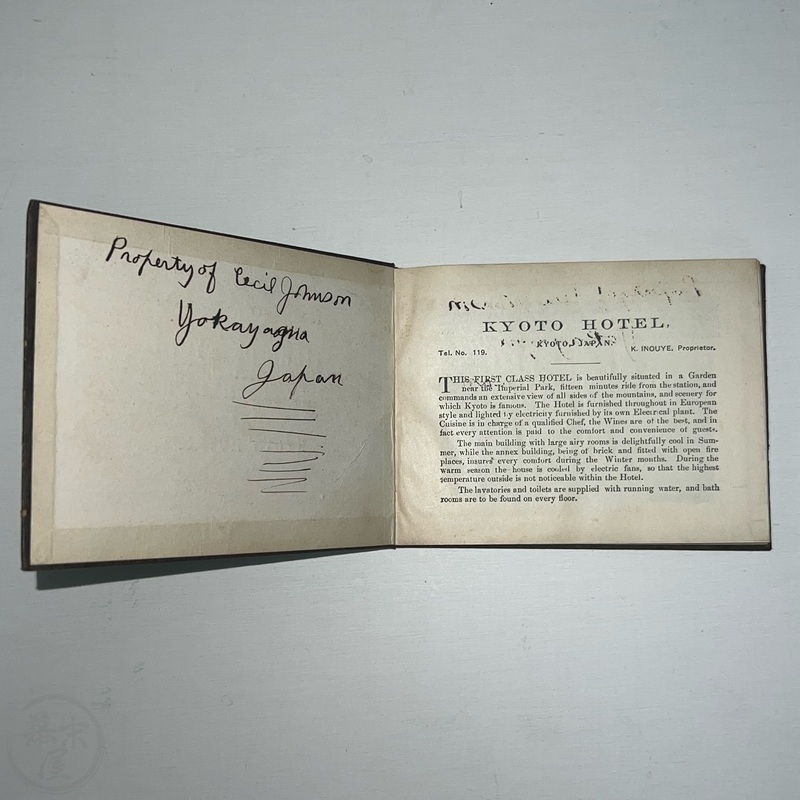 Property of Cecil Johnson
Yokayagna
Japan
KYOTO HOTEL,
KYOTO, JAPAN.
Tel. No. 119.
K. INOUYE, Proprietor.
THIS FIRST CLASS HOTEL is beautifully situated in a Garden
near the Imperial Park, fifteen minutes ride from the station, and
commands an extensive view of all sides of the mountains, and scenery for
which Kyoto is famous. The Hotel is furnished throughout in European
style and lighted by electricity furnished by its own Electrical plant. The
Cuisine is in charge of a qualified Chef, the Wines are of the best, and in
fact every attention is paid to the comfort and convenience of guests.
The main building with large airy rooms is delightfully cool in Sum-
mer, while the annex building, being of brick and fitted with open fire
places, insures every comfort during the Winter months. During the
warm season the house is cooled by electric fans, so that the highest
temperature outside is not noticeable within the Hotel.
The lavatories and toilets are supplied with running water, and bath
rooms are to be found on every floor.